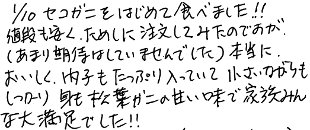 1/10 セコガニをはじめて食べました!!
値段も安く、ためしに注文してみたのですが、
(あまり期待はしていませんでした)本当に、
おいしく、内子もたっぷり入っていて 小さいながらも
しっかり 身も 松葉ガニの甘い味で家族みん
な大満足でした!!